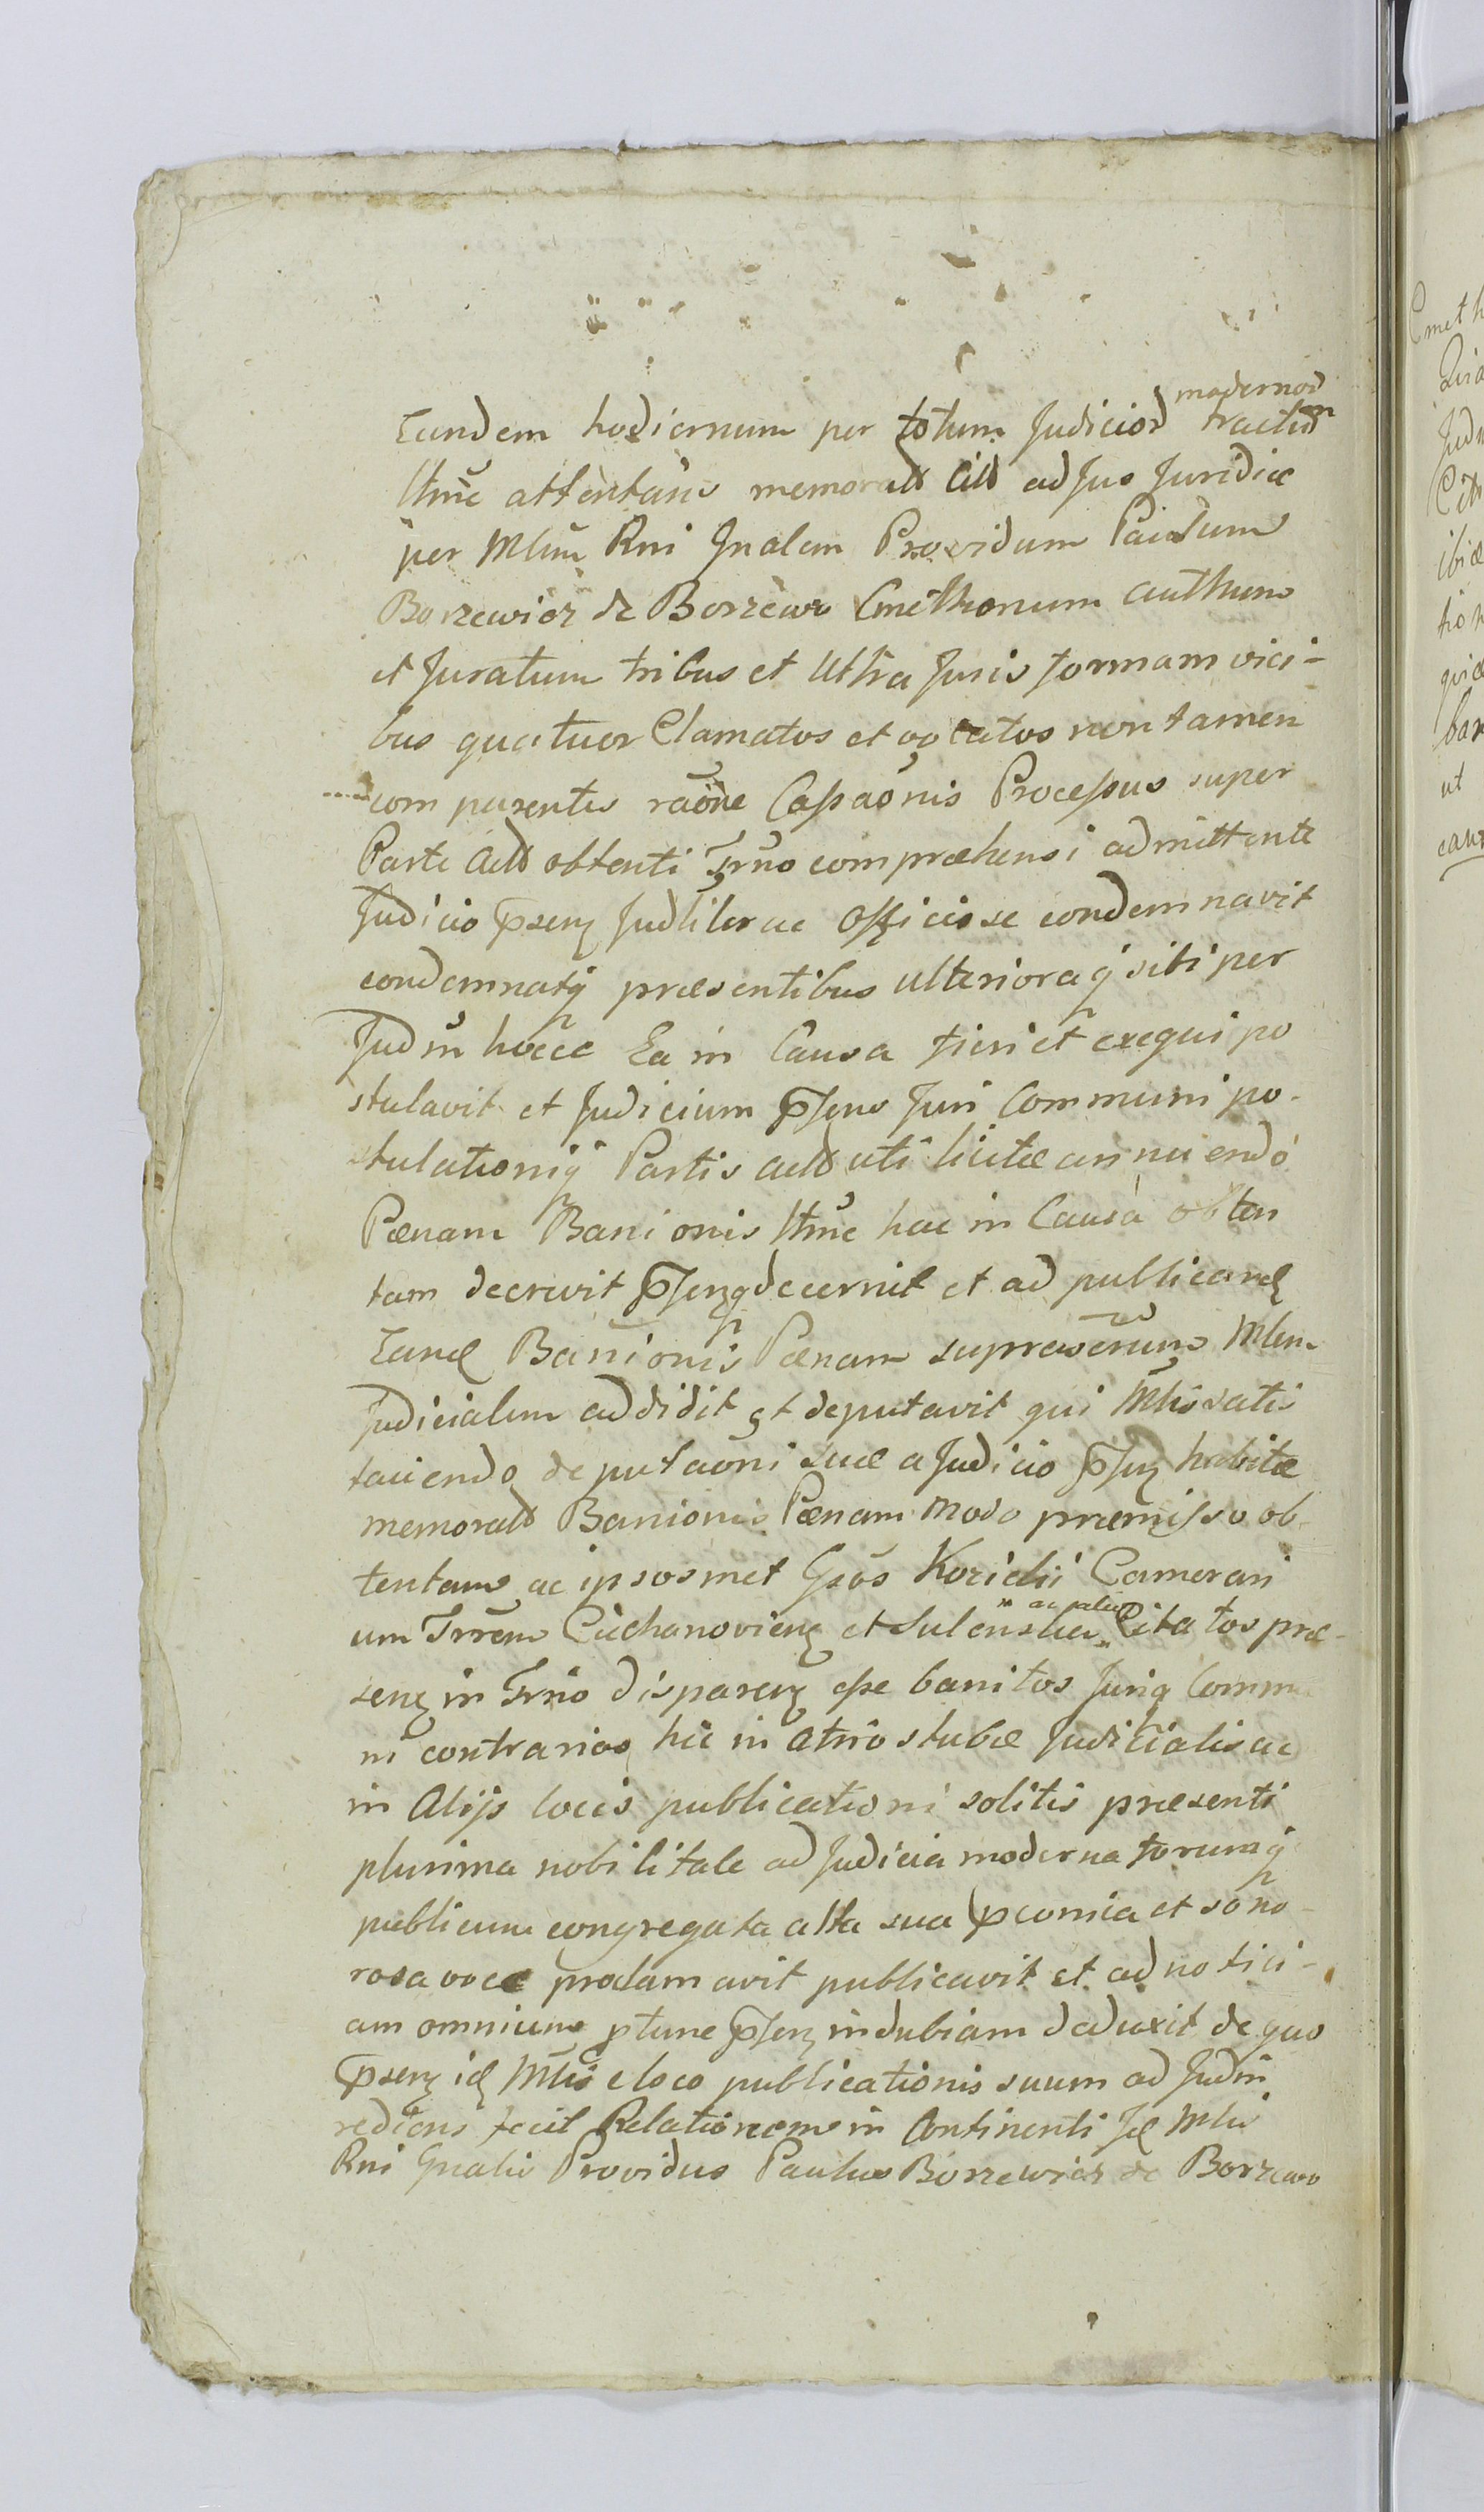 Eundem hodiernum per totum Judiciord modernord tractum
ltme attentari memoratd Citd ad Jus Juridice
per Mlrm Rni Gnalem Providum Paulum
Borzewicz de Borzewo Cmethonum authum
et Juratum tribus et ultra Juris formam vici-
bus quatuor Clamatos et vocatos non tamen
comparentes raone Cassaonis Processus super
Parte Actd obtenti Trno compræhensi admittente
Judicio pserz Judliter ac Officiose condemnavit
condemnatq præsentibus ulterioraq sibi per
Judm hocce Ea in Causa fieri et exequi po
stulavit et Judicium psens Juri Communi po-
stulationiq Partis actd uti licitæ annuendo
Pænam Banionis ltme hac in Causa obten
tam decrevit psenzq decernit et ad publicand
Eand Banionis Pænam supræscrum Mlem
Judicialem addidit et deputavit qui Mlis satis
faciendo deputaoni suæ a Judicio psenz habitæ
memoratd Banionis Pænam modo præmisso ob
tentam ac ipsosmet Gsos Kozicki Camerari
um Trrem Ciechanoviens et Sulenska ac alios Citatos præ-
senz in Trno disparenz esse banitos Juriq Commu
ni contrarios hic in atrio stubæ Judicialis ac
in Alijs locis publicationi solitis præsenti
plurima nobilitate ad Judicia moderna forumq
publicum congregata alta sua pconica et sono-
rosa voce proclamavit publicavit et ad notici-
am omnium ptune psenz indubiam deduxit de quo
pserz id Mlis e loco publicationis suum ad Judm
rediens fecit Relationem in Continenti Id Mlis
Rni Gnalis Providus Paulus Borzewicz de Borzewo